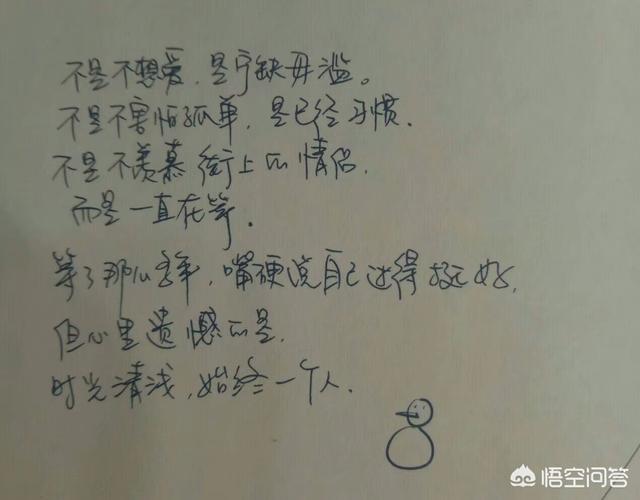 不是不想爱，是宁缺毋滥。
不是不害怕孤单，是已经习惯．
不是不羡慕街上的情侣，
而是一直在等．
等了那么多年，嘴硬说自己过得挺好，
但心里遗憾的是，
时光清浅，始终一个人．
悟空问答